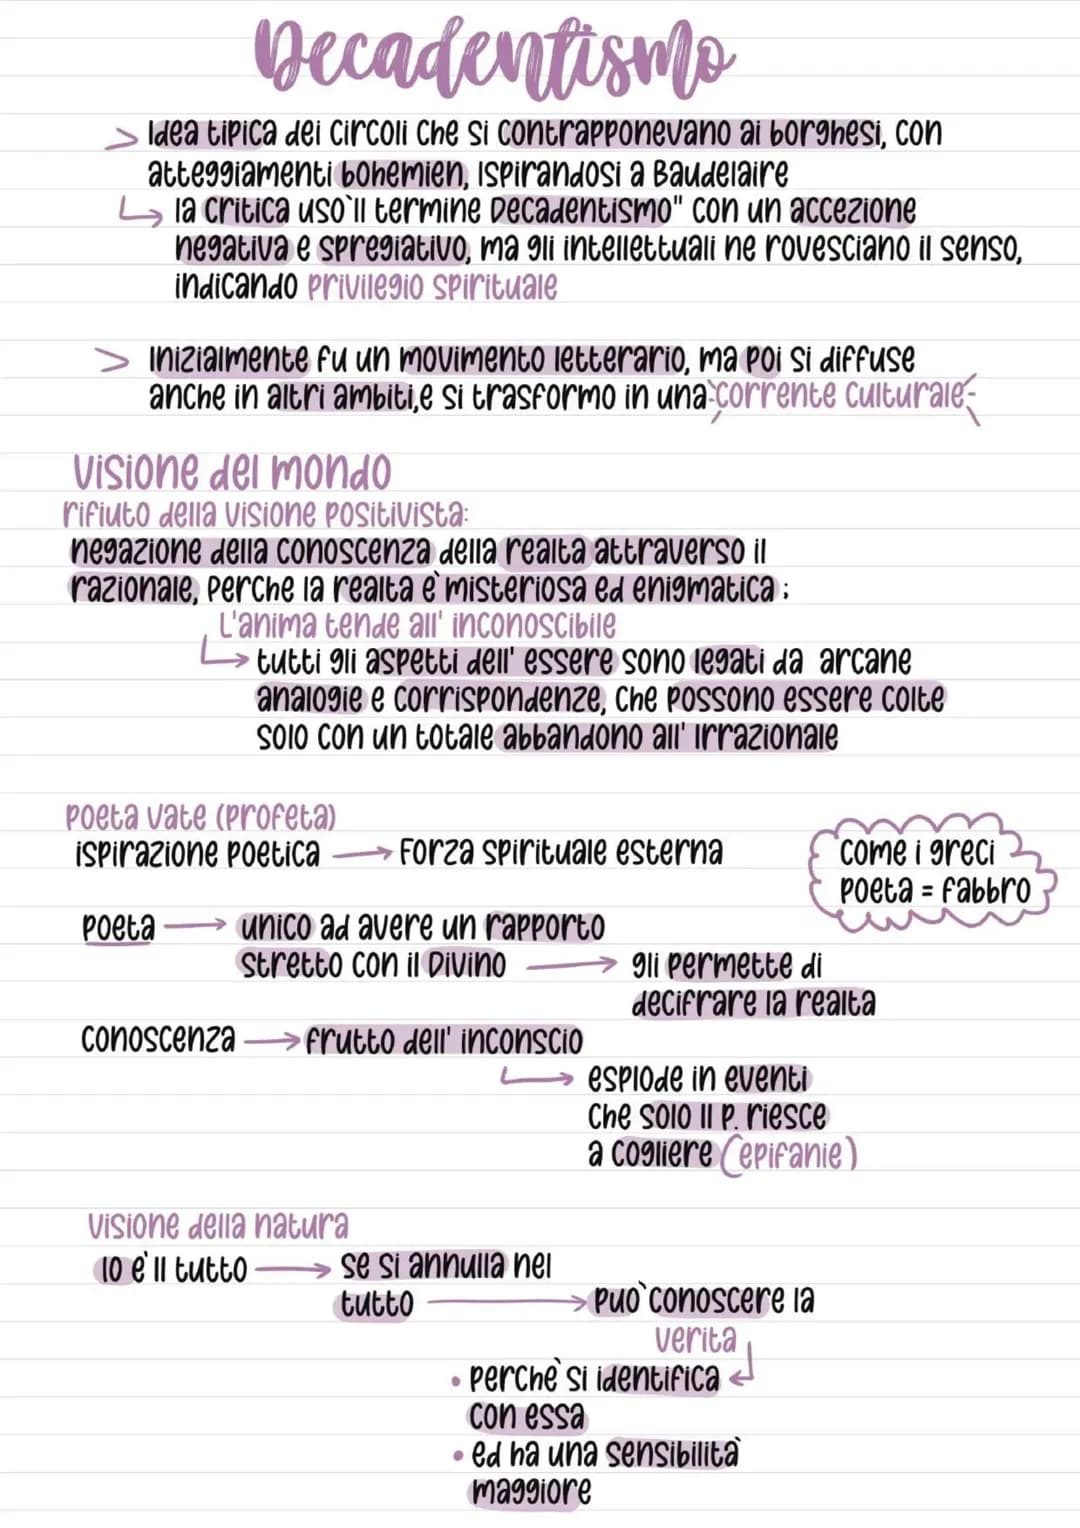 Decadentismo
> Idea tipica dei circoli che si contrapponevano ai borghesi, con
atteggiamenti bohemien, ispirandosi a Baudelaire
la critica uso`il termine Decadentismo" con un accezione
negativa e spregiativo, ma gli intellettuali ne rovesciano il senso,
indicando privilegio spirituale
> Inizialmente fu un movimento letterario, ma poi si diffuse
anche in altri ambiti,e si trasformo in una corrente culturale
Visione del mondo
rifiuto della visione positivista:
negazione della conoscenza della realta attraverso il
razionale, perche la realta e` misteriosa ed enigmatica ;
L'anima tende all' inconoscibile
tutti gli aspetti dell' essere sono legati da arcane
analogie e corrispondenze, che possono essere colte
solo con un totale abbandono all' irrazionale
poeta vate (profeta)
ispirazione poetica → Forza spirituale esterna
come i greci
poeta = fabbro
poeta → unico ad avere un rapporto
stretto con il Divino → gli permette di
decifrare la realta
conoscenza → frutto dell' inconscio
esplode in eventi
che solo il p. riesce
a cogliere (epifanie)
visione della natura
Io e` il tutto → se si annulla nel
tutto → puo` conoscere la
verita
• perche` si identifica
con essa
• ed ha una sensibilita`
maggiore